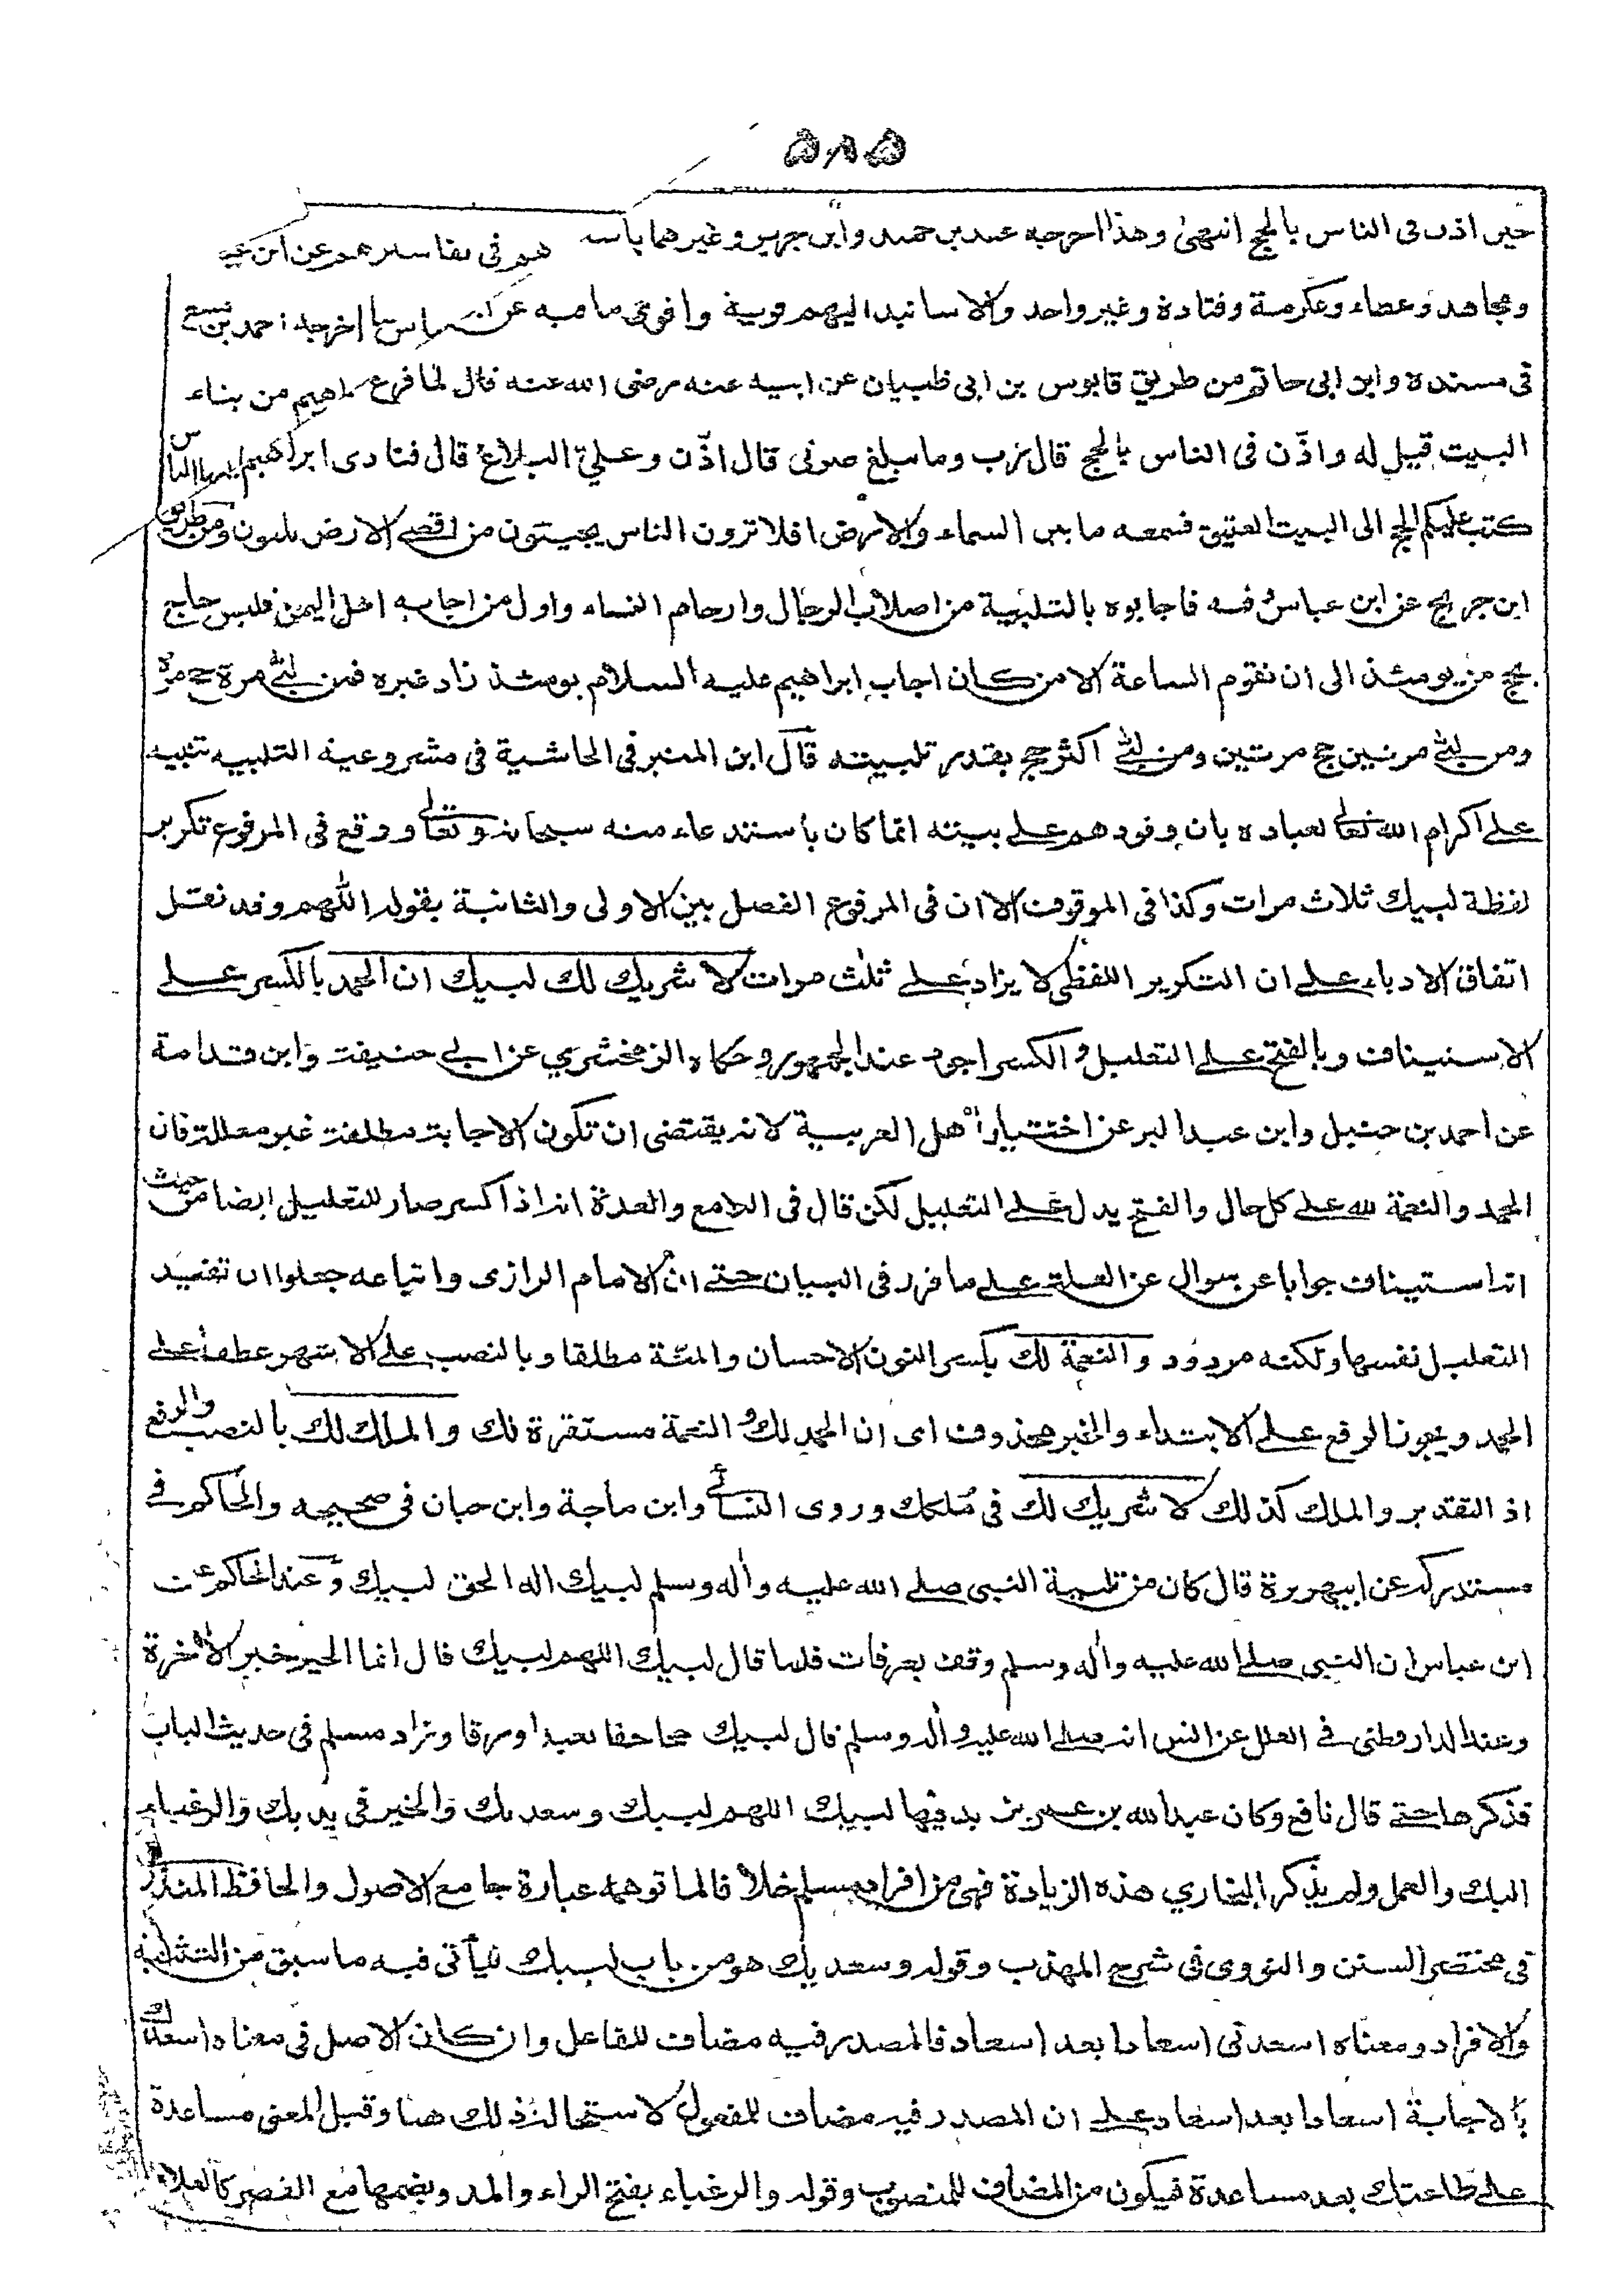 ۵۸۵
حين اذن فى الناس بالحج انتهىٰ وهذا اخرجه عبد بن حميد وابن جرير وغيرهما باسا هم فى تفاسيرهم عن ابن عبا
ومجاهد وعطاء وعكرمة وقتادة وغير واحد والاسانيد اليهم قوية واقوىٰ ما فيه عن ابن عباس ما اخرجه احمد بن منيع
فى مسنده وابن ابى حاتم من طريق قابوس بن ابى ظبيان عن ابيه عنه رضى الله عنه قال لما فرغ ابراهيم من بناء
البيت قيل له واذّن فى الناس بالحج قال رب وما يبلغ صوتى قال اذّن وعليّ البلاغ قال فنادى ابراهيم يا ايها الناس
كتب عليكم الحج الى البيت العتيق فسمعه ما بين السماء والارض افلا ترون الناس يجيئون من اقصى الارض يلبون ومن طريق
ابن جريج عن ابن عباس وفيه فاجابوه بالتلبية من اصلاب الرجال وارحام النساء واول من اجابه اهل اليمن فليس حاج
يحج من يومئذ الى ان تقوم الساعة الا من كان اجاب ابراهيم عليه السلام يومئذ زاد غيره فمن لبّى مرة حج مرة
ومن لبّى مرتين حج مرتين ومن لبّى اكثر حج بقدر تلبيته قال ابن المنير فى الحاشية فى مشروعية التلبيه تنبيه
على اكرام الله تعالى لعباده بان وفودهم على بيته انما كان باستدعاء منه سبحانه وتعالى ووقع فى المرفوع تكرير
لفظة لبيك ثلاث مرات وكذا فى الموقوف الا ان فى المرفوع الفصل بين الاولى والثانية بقوله اللّٰهم وقد نقل
اتفاق الادباء على ان التكرير اللفظى لا يزاد على ثلٰث مرات لا شريك لك لبيك ان الحمد بالكسر على
الاستيناف وبالفتح على التعليل والكسر اجود عند الجمهور وحكاه الزمخشري عن ابي حنيفة وابن قدامة
عن احمد بن حنبل وابن عبد البر عن اختيار اهل العربية لانه يقتضى ان تكون الاجابة مطلقة غير معللة فان
الحمد والنعمة لله على كل حال والفتح يدل على التعليل لكن قال فى اللامع والعدة انه اذا كسر صار للتعليل ايضا من حيث
انه استيناف جوابا عن سوال عن العلة على ما قرر فى البيان حتى ان الامام الرازى واتباعه جعلوا ان تفيد
التعليل نفسها ولكنه مردود والنعمة لك بكسر النون الاحسان والمنّة مطلقا وبالنصب على الاشهر عطفا على
الحمد ويجوز الرفع على الابتداء والخبر محذوف اى ان الحمد لك والنعمة مستقرة لك والملك لك بالنصب والرفع
اذ التقدير والملك كذلك لا شريك لك فى مُلكك وروى النسائى وابن ماجة وابن حبان فى صحيحه والحاكم فى
مستدركه عن ابيهريرة قال كان من تلبية النبى صلى الله عليه واٰله وسلم لبيك اله الحق لبيك وعند الحاكم عن
ابن عباس ان النبى صلى الله عليه واٰله وسلم وقف بعرفات فلما قال لبيك اللهم لبيك قال انما الخير خير الاٰخرة
وعند الدارقطنى فى العلل عن انس انه صلى الله عليه واٰله وسلم قال لبيك حجا حقا تعبدا ورقا وزاد مسلم فى حديث الباب
فذكرها حتى قال نافع وكان عبد الله بن عمر يزيد فيها لبيك اللهم لبيك وسعديك والخير فى يديك والرغباء
اليك والعمل ولم يذكر البخاري هذه الزيادة فهى من افراد مسلم خلافا لما توهمه عبارة جامع الاصول والحافظ المنذرى
فى مختصر السنن والنووى فى شرح المهذب وقوله وسعديك هو من باب لبيك فيأتى فيه ما سبق من التثنية
والافراد ومعناه اسعدنى اسعادا بعد اسعاد فالمصدر فيه مضاف للفاعل وان كان الاصل فى معناه اسعدك
بالاجابة اسعادا بعد اسعاد على ان المصدر فيه مضاف للمفعول لاستحالة ذلك هنا وقيل المعنى مساعدة
على طاعتك بعد مساعدة فيكون من المضاف للمنصوب وقوله والرغباء بفتح الراء والمد وبضمها مع القصر كالعلاء